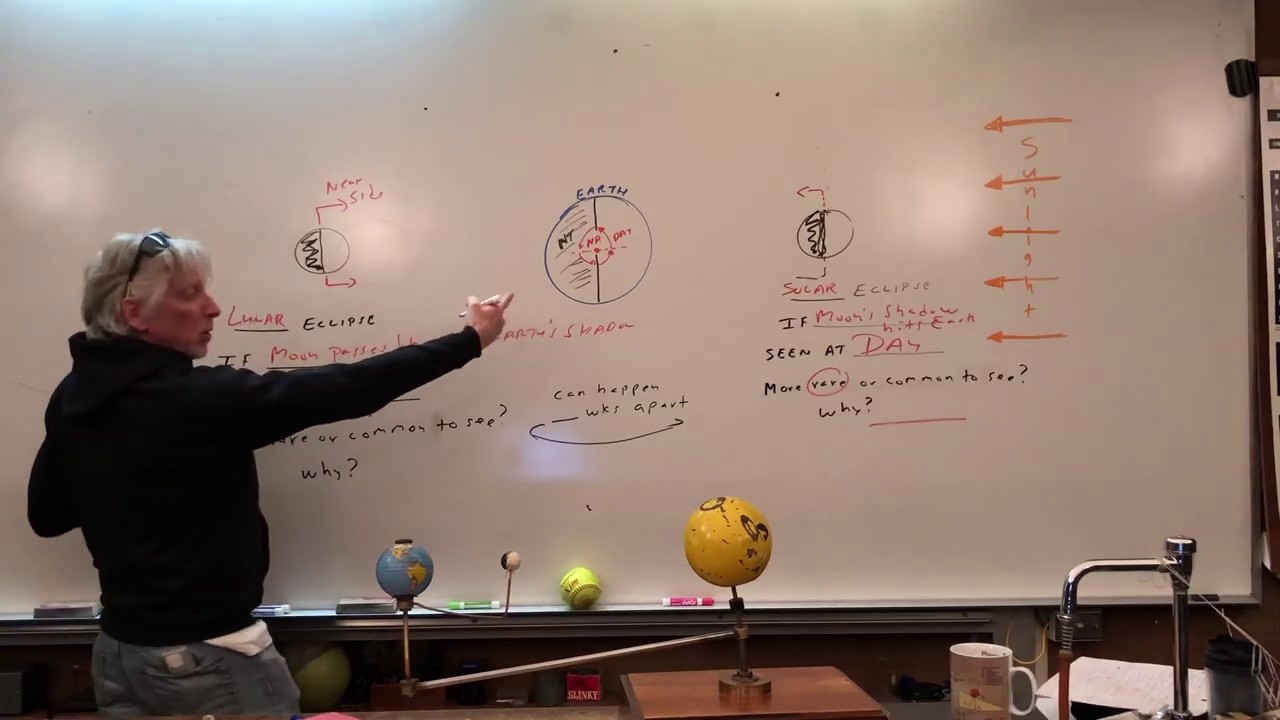 Near
Side
EARTH
NT
NP
DAY
Sunlight
LUNAR ECLIPSE
IF Moon passes
EARTH'S SHADOW
or common to see?
why?
can happen
wks apart
SOLAR ECLIPSE
IF Moon's Shadow
hits Earth
SEEN AT DAY
More rare or common to see?
why?
SLINKY